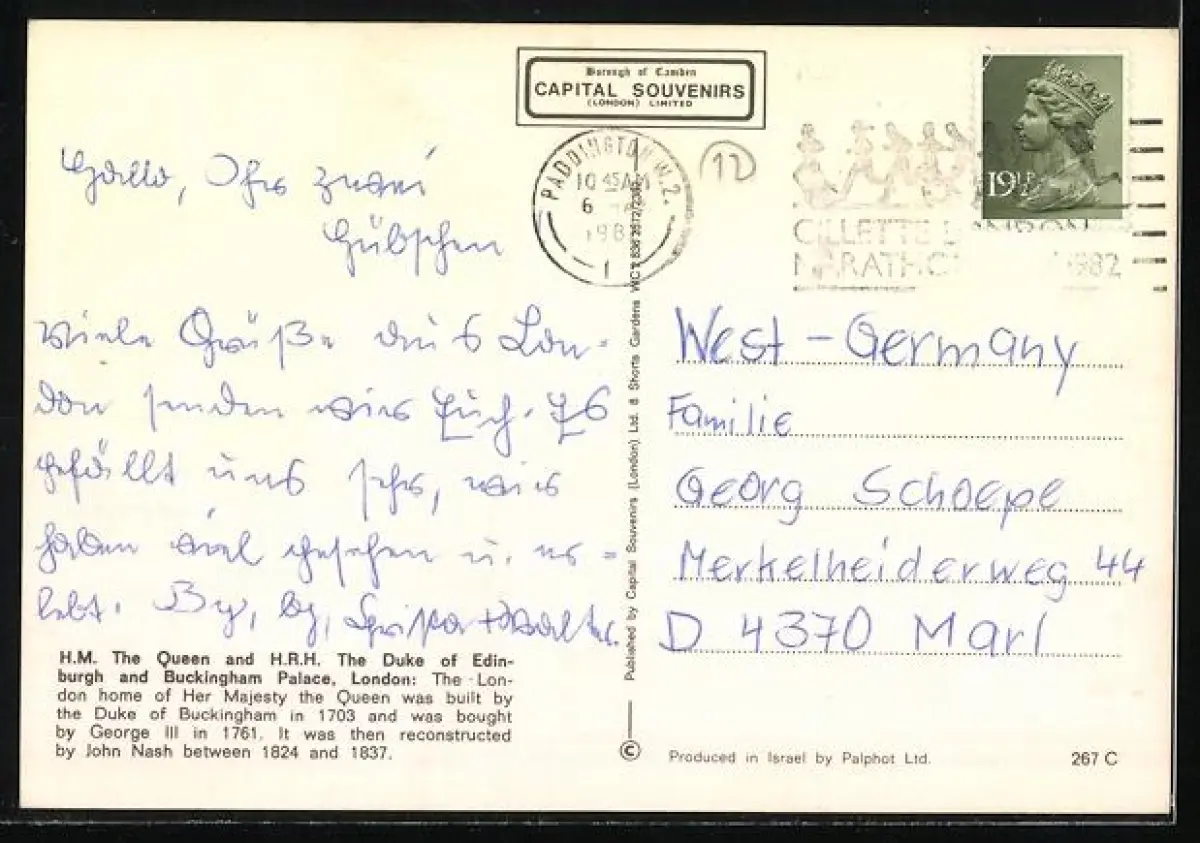 Borough of Camden
CAPITAL SOUVENIRS
(LONDON) LIMITED
PADDINGTON W.2.
10 45 AM
6
198
12
19½P
GILLETTE LONDON
MARATHON 1982
Hallo, Ihr zwei
Hübschen
Viele Grüße aus Lon-
don senden wir Euch. Es
gefällt uns sehr, wir
haben viel gesehen u. er-
lebt. By, by, Christa + Walter.
H.M. The Queen and H.R.H. The Duke of Edin-
burgh and Buckingham Palace, London: The Lon-
don home of Her Majesty the Queen was built by
the Duke of Buckingham in 1703 and was bought
by George III in 1761. It was then reconstructed
by John Nash between 1824 and 1837.
Published by Capital Souvenirs (London) Ltd. 8 Shorts Gardens WC2
©
West-Germany
Familie
Georg Schoepe
Merkelheiderweg 44
D 4370 Marl
Produced in Israel by Palphot Ltd.
267 C